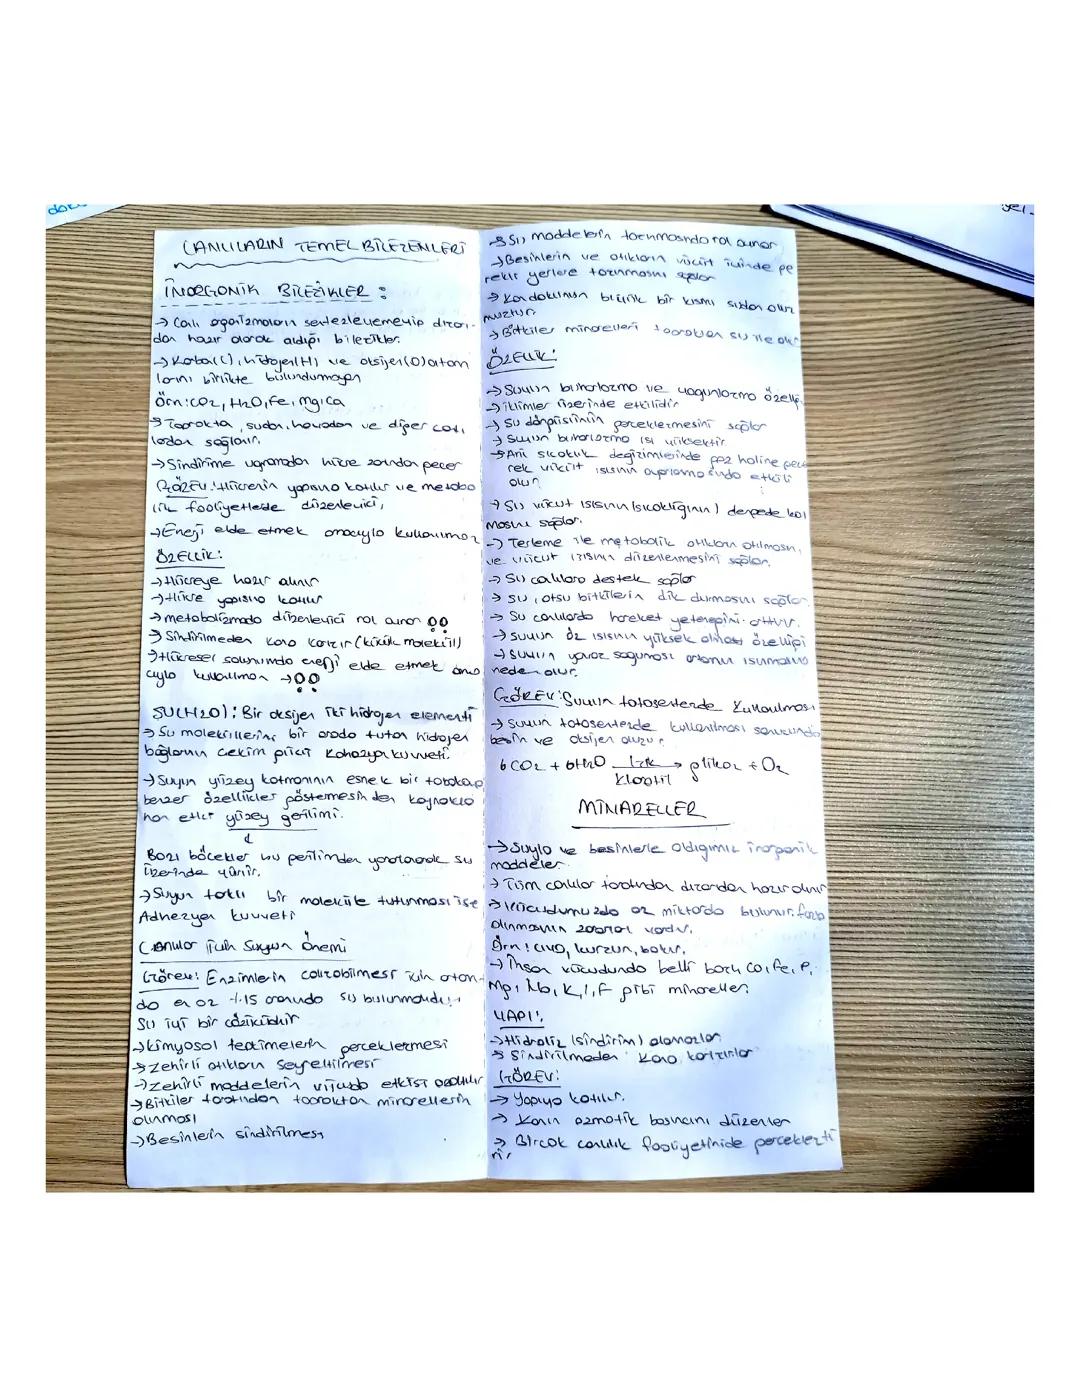 CANLILARIN TEMEL BİLEŞENLERİ
İNORGONİK BİLEŞİKLER :
→ Canlı organizmaların sentezleyemeyip dışarı-
dan hazır olarak aldığı bileşikler.
→ Karbon(C), hidrojen(H) ve oksijen(O) atom
larını birlikte bulundurmayan
Örn: CO2, H2O, Fe, Mg, Ca
→ Toprakta, sudan, havadan ve diğer canlı
lardan sağlanır.
→ Sindirime uğramadan hücre zarından geçer
GÖREV: Hücrenin yapısına katılır ve metabo
lik faaliyetlerde düzenleyici,
→ Enerji elde etmek amacıyla kullanılmaz
ÖZELLİK:
→ Hücreye hazır alınır
→ Hücre yapısına katılır
→ metabolizmada düzenleyici rol oynar !!
→ Sindirilmeden kana karışır (küçük molekül)
→ Hücresel solunumda enerji elde etmek ama
cıyla kullanılmaz → !!
SU(H2O): Bir oksijen iki hidrojen elementi
→ Su moleküllerini bir arada tutan hidrojen
bağlarının çekim gücü Kohezyon kuvveti.
→ Suyun yüzey katmanının esnek bir tabakaya
benzer özellikler göstermesinden kaynakla
nan etki yüzey gerilimi.
↓
Bazı böcekler bu gerilimden yararlanarak su
üzerinde yürür.
→ Suyun farklı bir moleküle tutunması ise
Adhezyon kuvveti
Canlılar İçin Suyun Önemi
Görev: Enzimlerin çalışabilmesi için ortam-
da en az %15 oranında su bulunmalıdır.
Su iyi bir çözücüdür
→ kimyasal tepkimelerin gerçekleşmesi
→ Zehirli atıkların seyreltilmesi
→ Zehirli maddelerin vücudda etkisi azaltılır
→ Bitkiler tarafından topraktan minerallerin
alınması
→ Besinlerin sindirilmesi
→ Su, maddelerin taşınmasında rol oynar
→ Besinlerin ve atıkların vücut içinde ge
rekli yerlere taşınmasını sağlar
→ Kan dokunun büyük bir kısmı sudan oluş
muştur.
→ Bitkiler mineralleri topraktan su ile alır
ÖZELLİK:
→ Suyun buharlaşma ve yoğunlaşma özelliği
→ iklimler üzerinde etkilidir
→ Su döngüsünün gerçekleşmesini sağlar
→ Suyun buharlaşma ısı yüksektir
→ Ani sıcaklık değişimlerinde gaz haline geçe
rek vücut ısısının ayarlanmasında etkili
olur
→ Su vücut ısısının (sıcaklığının) dengede kal
masını sağlar.
→ Terleme ile metabolik atıkların atılmasını,
ve vücut ısısının düzenlenmesini sağlar.
→ Su canlılara destek sağlar
→ su, otsu bitkilerin dik durmasını sağlar
→ Su canlılarda hareket yeteneğini arttırır.
→ suyun öz ısısının yüksek olması özelliği
→ Suyun yavaş soğuması ortamın ısınmasına
neden olur.
GÖREV: Suyun fotosentezde kullanılması
→ suyun fotosentezde kullanılması sonucunda
besin ve oksijen oluşur.
6CO2 + 6H2O Işık → glikoz + O2
Klorofil
MİNARELLER
→ Suyla ve besinlerle aldığımız inorganik
maddeler.
→ Tüm canlılar tarafından dışarıdan hazır alınır
→ Vücudumuzda az miktarda bulunur. fazla
alınmasının zararları vardır.
Örn: civa, kurşun, bakır,
→ İnsan vücudunda belli başlı Ca, Fe, P,
Mg, Na, K, I, F gibi mineraller.
YAPI:
→ Hidroliz (sindirim) olamazlar
→ Sindirilmeden Kana karışırlar
GÖREV:
→ Yapıya katılır.
→ Kanın ozmotik basıncını düzenler
→ Birçok canlılık faaliyetinide gerçekleşti
rir